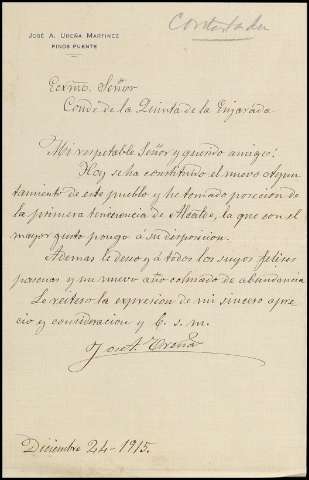 JOSÉ A. UREÑA MARTINEZ
PINOS PUENTE
Contestada
Excmo. Señor
Conde de la Quinta de la Enjarada
Mi respetable Señor y querido amigo:
Hoy se ha constituido el nuevo Ayun-
tamiento de este pueblo y he tomado posesion de
la primera tenencia de Alcalde, la que con el
mayor gusto pongo á su disposicion.
Ademas le deseo y á todos los suyos felices
pascuas y un nuevo año colmado de abundancia
Le reitero la expresion de mi sincero apre-
cio y consideracion y b. s. m.
José A. Ureña
Diciembre 24-1915.